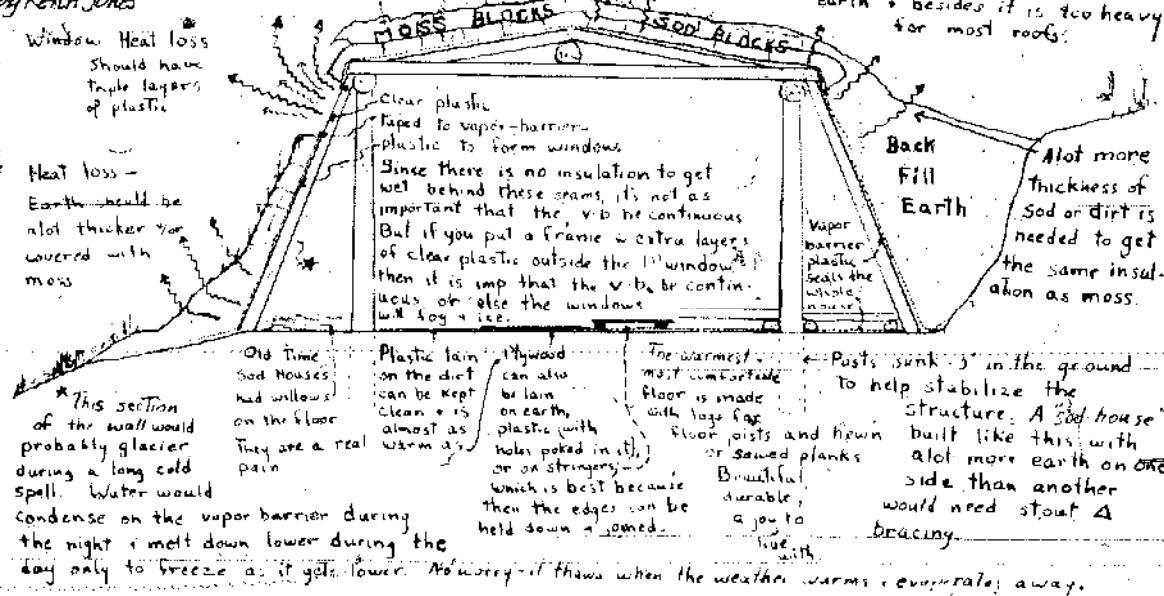 by Keith Jones
earth + besides it is too heavy
for most roofs.
MOSS BLOCKS
SOD BLOCKS
Window Heat loss
Should have
triple layers
of plastic
Heat loss -
Earth should be
alot thicker &/or
covered with
moss
Clear plastic
taped to vapor-barrier-
plastic to form windows
Since there is no insulation to get
wet behind these seams, it's not as
important that the v.b be continuous
But if you put a frame w extra layers
of clear plastic outside the 1st window
then it is imp that the v.b. be contin-
uous or else the windows
will fog & ice.
Vapor
barrier
plastic
seals the
whole
house
Back
Fill
Earth
Alot more
thickness of
Sod or dirt is
needed to get
the same insul-
ation as moss.
* This section
of the wall would
probably glacier
during a long cold
spell. Water would
condense on the vapor barrier during
the night & melt down lower during the
day only to freeze as it gets lower. No worry - it thaws when the weather warms & evaporates away.
Old Time
Sod Houses
had willows
on the floor
They are a real
pain
Plastic lain
on the dirt
can be kept
clean & is
almost as
warm as
Plywood
can also
be lain
on earth,
plastic (with
holes poked in it),
or on stringers,
which is best because
then the edges can be
held down & joined.
The warmest,
most comfortable
floor is made
with logs for
floor joists and hewn
or sawed planks
Beautiful
durable,
a joy to
live
with.
Posts sunk 3' in the ground
to help stabilize the
structure. A "sod house"
built like this with
alot more earth on one
side than another
would need stout Δ
bracing.